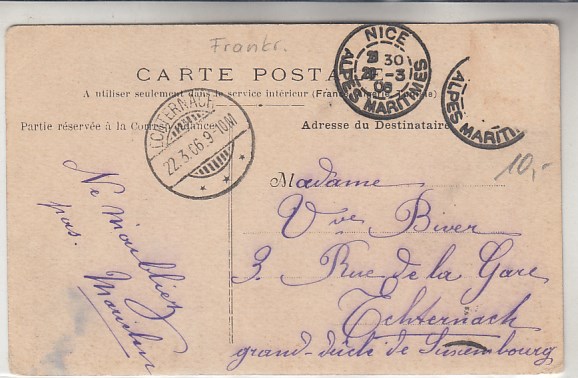 Frankr.
CARTE POSTA
A utiliser seulement dans le service intérieur (France,
Partie réservée à la Correspondance
Adresse du Destinataire
NICE
30
-3
06
ALPES MARITIMES
ALPES MARITI
ECHTERNACH
22.3.06.9-10M
10,-
Ne m'oubliez
pas.
Madame
Vve Biver
3. Rue de la Gare
Echternach
grand-duché de Luxembourg